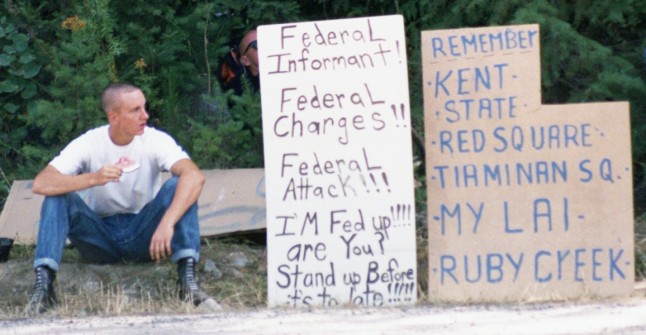 Federal
Informant!
Federal
Charges!!
Federal
Attack!!!
I'M Fed up!!!!
are You?
Stand up Before
it's to late!!!!!
REMEMBER
·KENT·
·STATE·
·RED SQUARE·
·TIAMINAN SQ.·
·MY LAI·
·RUBY CREEK·